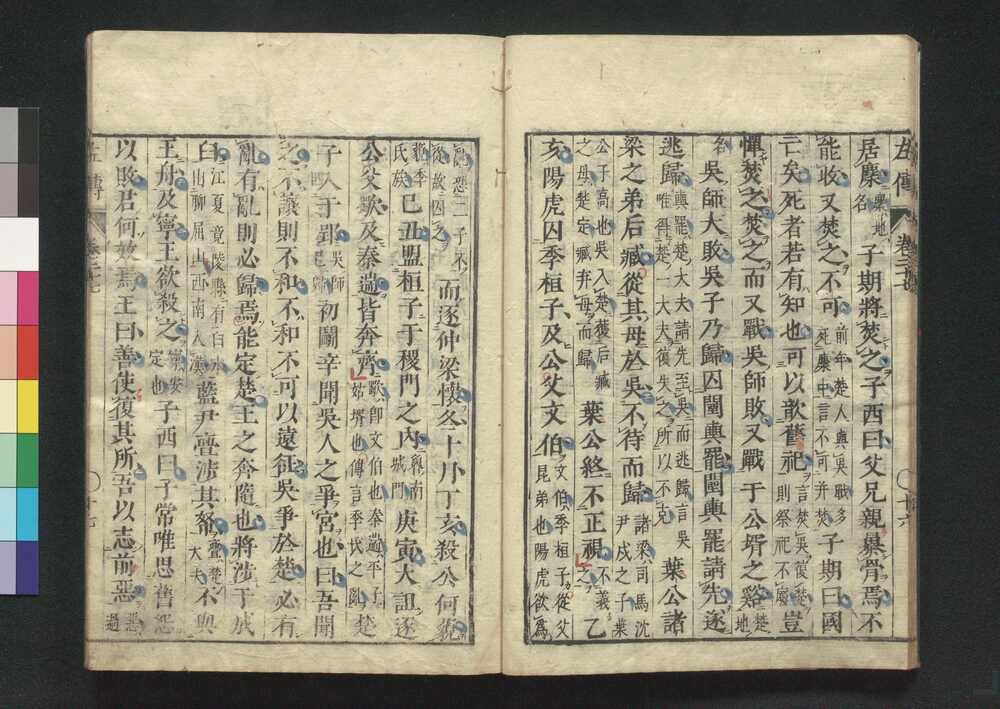 左傳 卷二十七 十六
居麇麇地名子期將焚之子西曰父兄親暴骨焉不
能收又焚之不可前年楚人與吳戰多死麇中言不可并焚子期曰國
亡矣死者若有知也可以歆舊祀言焚吳復楚則祭祀不廢豈
憚焚之焚之而又戰吳師敗又戰于公壻之谿楚地
名吳師大敗吳子乃歸囚闉輿罷闉輿罷請先遂
逃歸輿罷楚大夫請先至吳而逃歸言吳唯得楚一大夫復失之所以不克葉公諸
梁之弟后臧從其母於吳不待而歸諸梁司馬沈尹戌之子葉
公子高也吳入楚獲后臧之母楚定臧弃母而歸葉公終不正視不義之乙
亥陽虎囚季桓子及公父文伯文伯季桓子從父昆弟也陽虎欲爲
亂恐二子不從故囚之而逐仲梁懷冬十月丁亥殺公何藐
藐季氏族己丑盟桓子于稷門之內魯南城門庚寅大詛逐
公父歜及秦遄皆奔齊歜卽文伯也秦遄平子姑壻也傳言季氏之亂楚
子入于郢吳師已歸初鬭辛聞吳人之爭宮也曰吾聞
之不讓則不和不和不可以遠征吳爭於楚必有
亂有亂則必歸焉能定楚王之奔隨也將涉于成
臼江夏竟陵縣有臼水出聊屈山西南入漢藍尹亹涉其帑亹楚大夫不與
王舟及寧王欲殺之寧安定也子西曰子常唯思舊怨
以敗君何效焉王曰善使復其所吾以志前惡惡過
左傳 卷二十七 十七